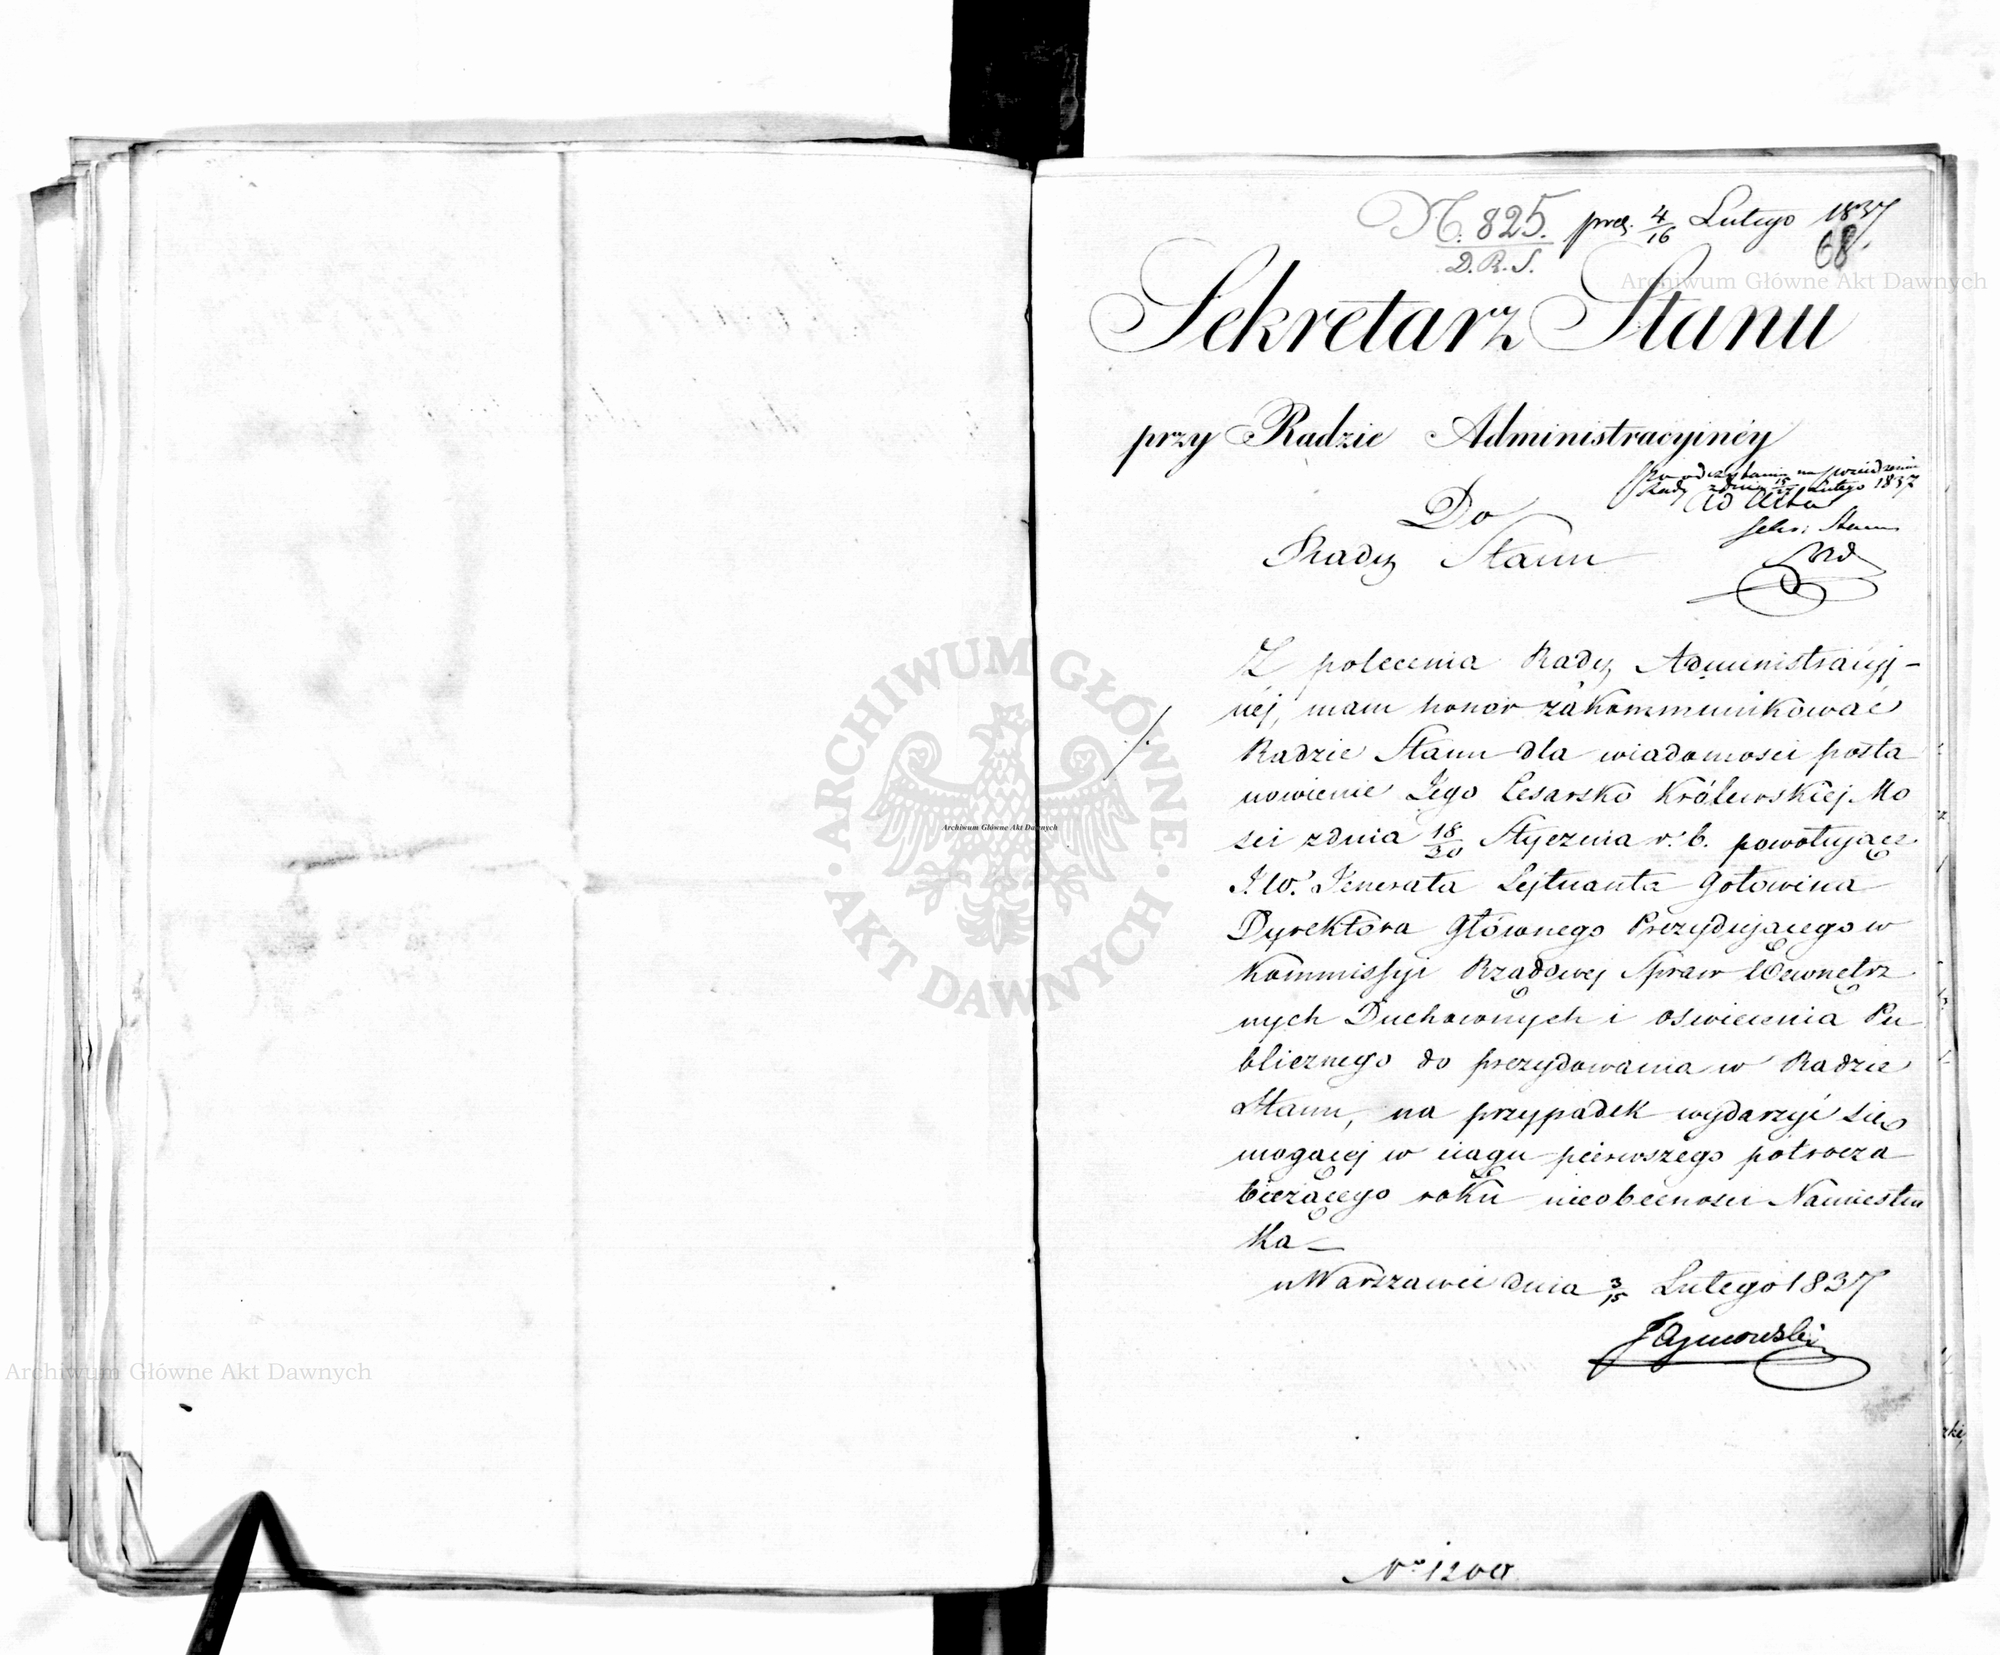 N. 825. pres. 4/16 Lutego 1837
D.R.S.
68.
Sekretarz Stanu
przy Radzie Administracyinéy
Po odczytaniu na posiedzeniu
Rady z dnia 15/27 Lutego 1837
ad acta
Sekr: Stanu
Do
Rady Stanu
Z polecenia Rady Administracyj-
néj, mam honor zakommunikować
Radzie Stanu dla wiadomości posta
nowienie Jego Cesarsko Królewskiej Mo
ści z dnia 18/30 Stycznia r. b. powołujące
J.W. Jenerała Lejtnanta Gołowina
Dyrektora Głównego Prezydującego w
Kommissyi Rządowej Spraw Wewnętrz
nych Duchownych i oświecenia Pu
blicznego do prezydowania w Radzie
Stanu, na przypadek wydarzyć się
mogącej w ciągu pierwszego półrocza
bieżącego roku nieobecności Namiestni
ka
w Warszawie dnia 3/15 Lutego 1837
JTymowski
No 1200
Archiwum Główne Akt Dawnych
ARCHIWUM GŁÓWNE
AKT DAWNYCH
Archiwum Główne Akt Dawnych
Archiwum Główne Akt Dawnych